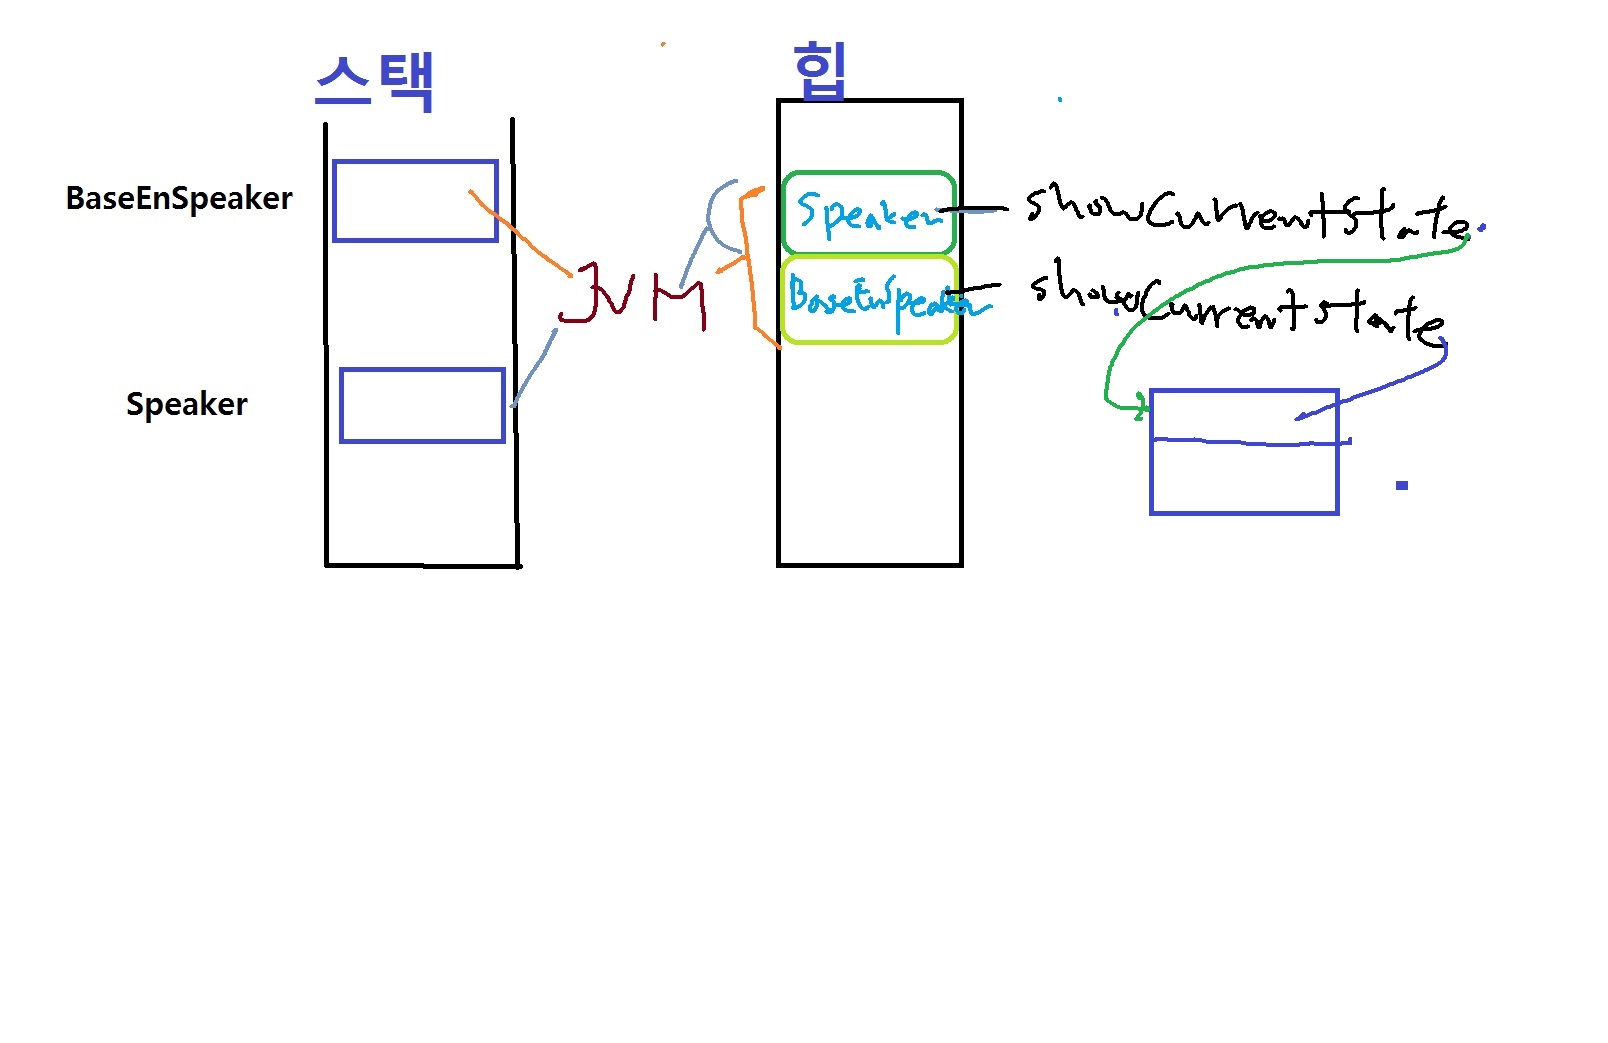 스택
힙
BaseEnSpeaker
Speaker
JVM
Speaker
BaseEnSpeaker
showCurrentState
showCurrentState